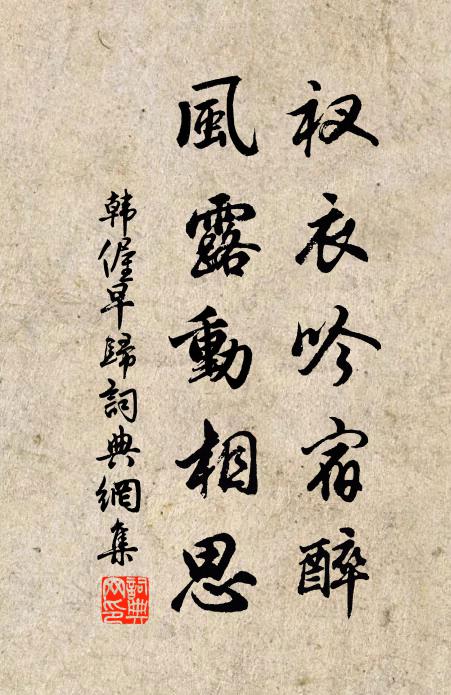 衩衣吟宿醉
風露動相思
韩偓早歸詞典網集
詞典
网印